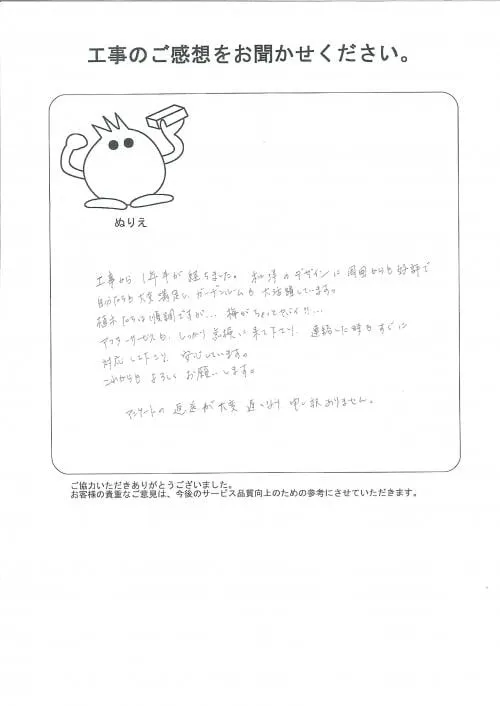 工事のご感想をお聞かせください。
ぬりえ
工事から1年半が経ちました。和洋のデザインに周囲からも好評で
自分たちも大変満足し、ガーデンルームも大活躍しています。
植木たちは順調ですが... 梅がちょっと
アフターサービスも、しっかり点検に来て下さり、連絡した時もすぐに
対応して下さり、安心しています。
これからもよろしくお願いします。
アンケートの返送が大変遅くなり申し訳ありません。
ご協力いただきありがとうございました。
お客様の貴重なご意見は、今後のサービス品質向上のための参考にさせていただきます。